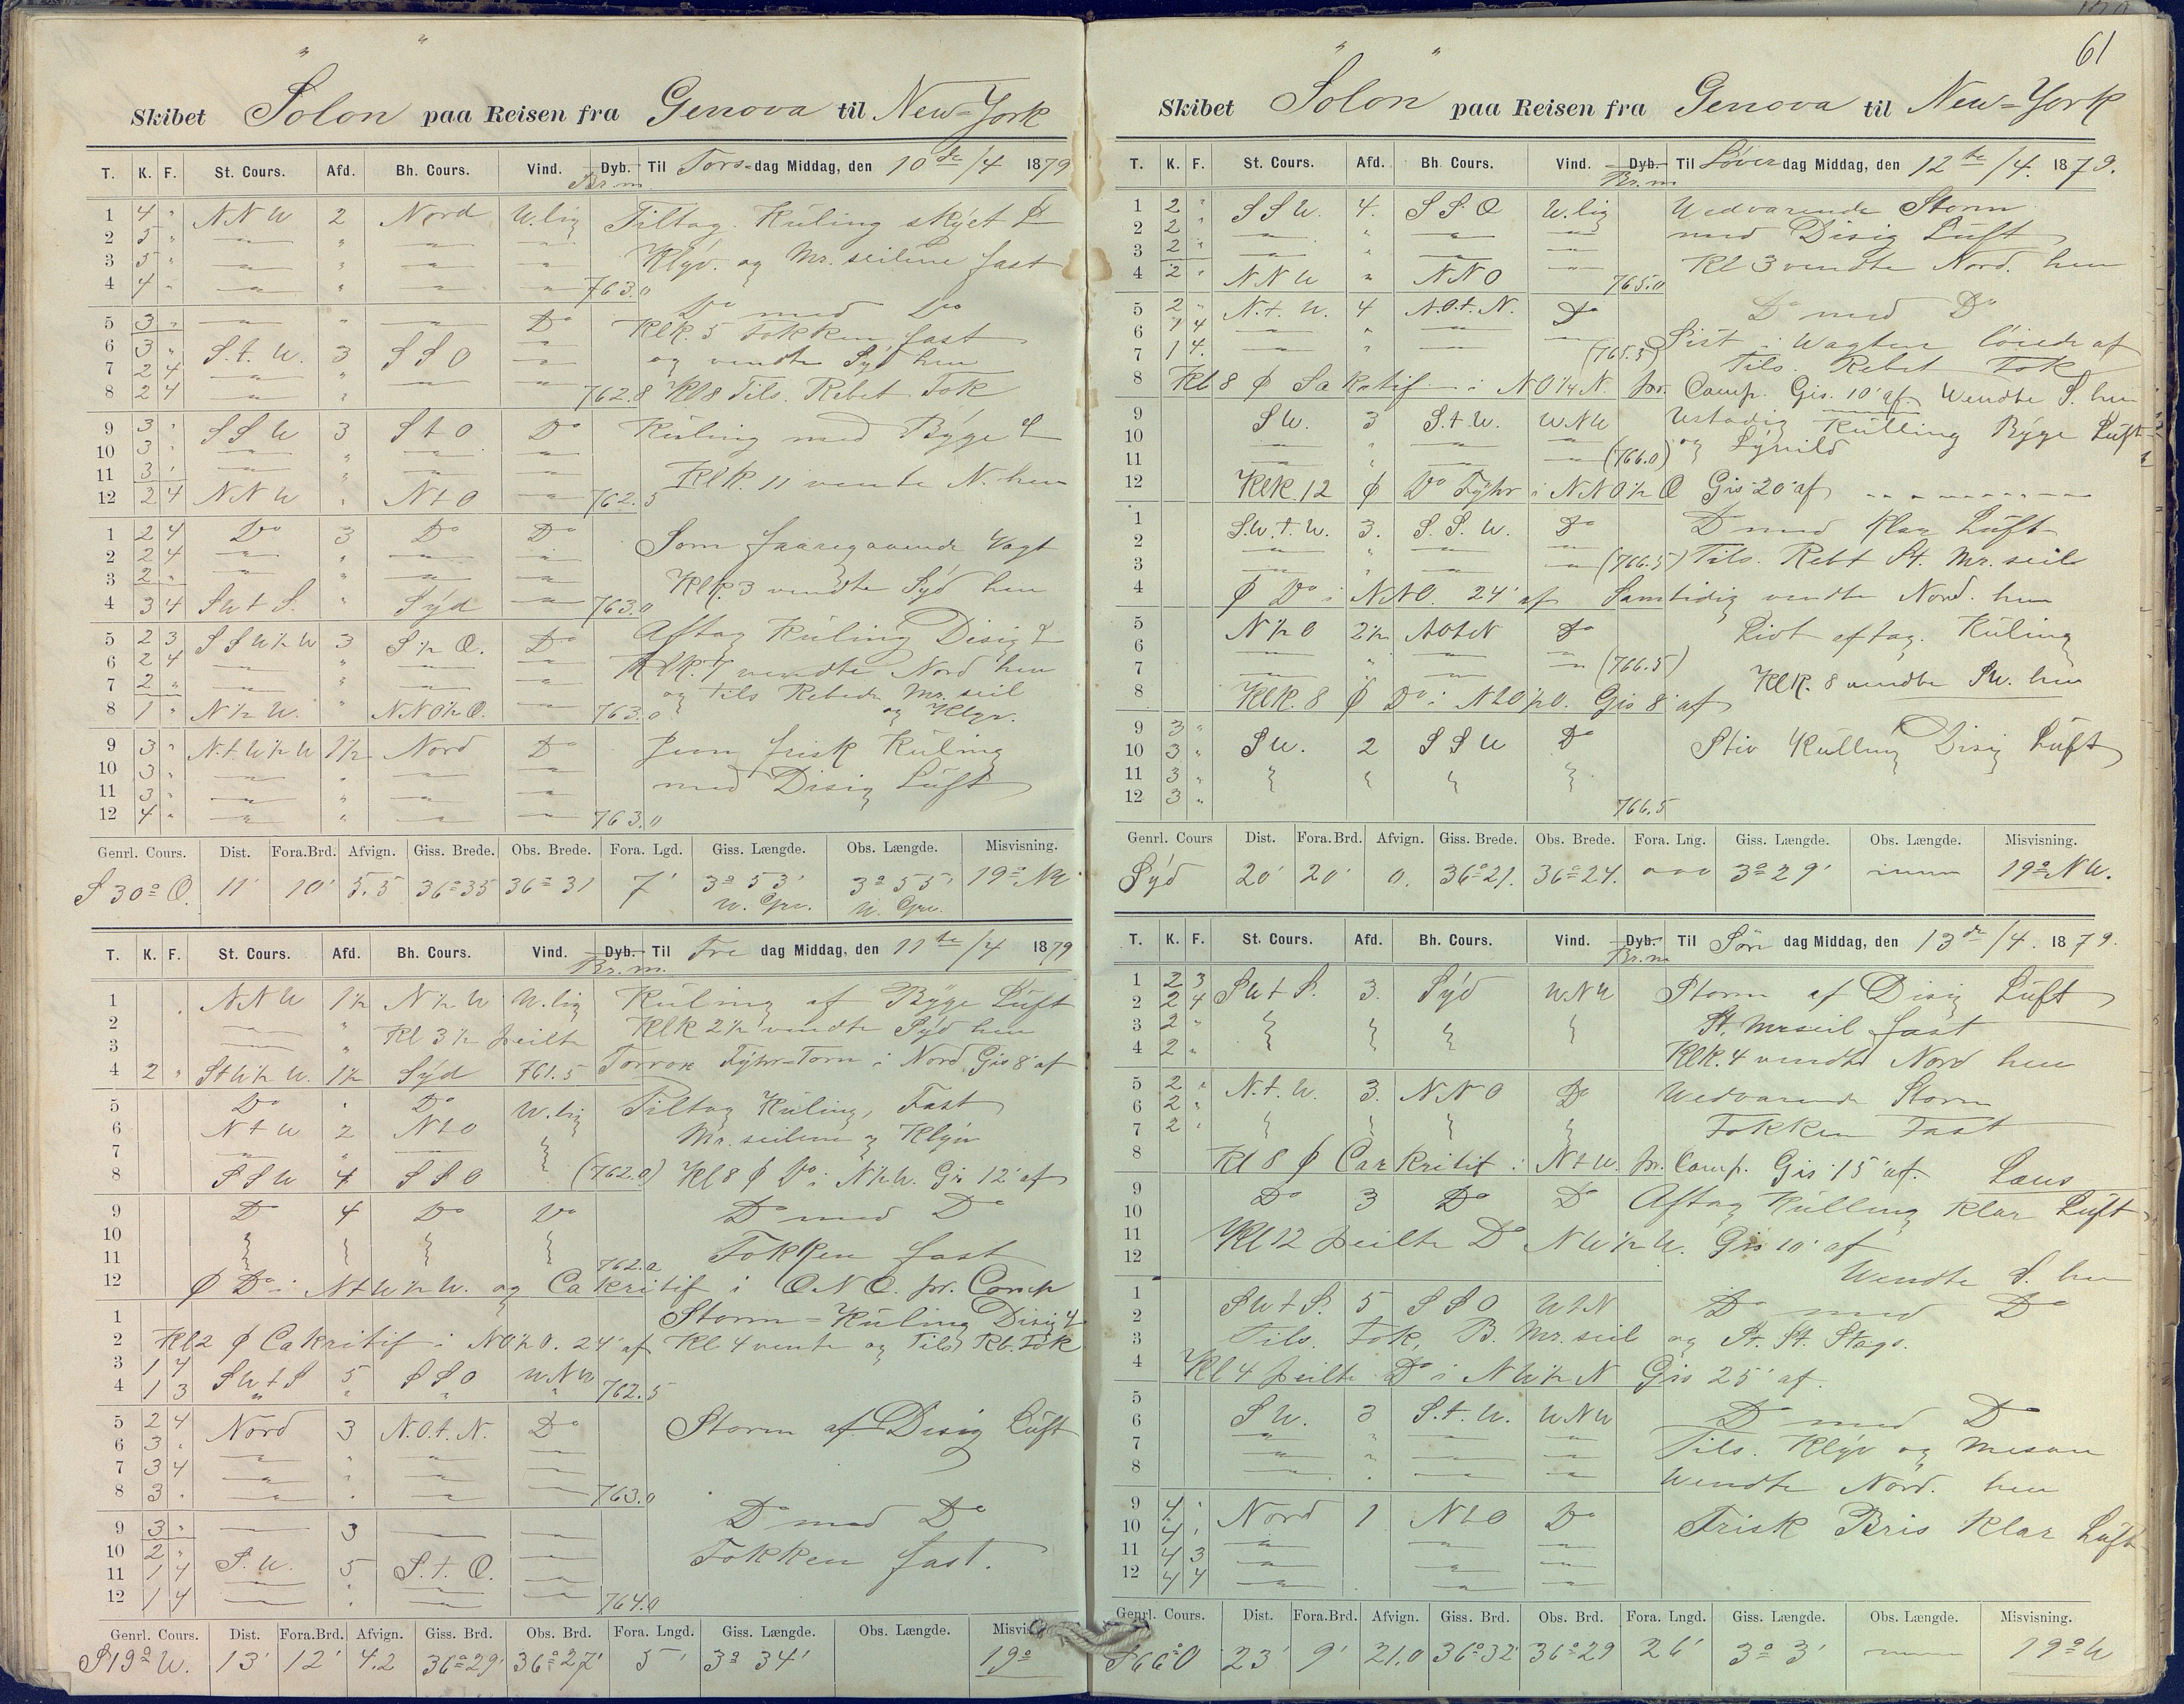 61
Skibet Solon paa Reisen fra Genova til New=York
T. K. F. St. Cours. Afd. Bh. Cours. Vind. Dyb. Br.m. Til Tors-dag Middag, den 10de/4 1879
1 4 " NNW 2 Nord W.lig Tiltag. Küling skÿet L
2 5 "
3 5 " Klÿv. og Mr. seilene fast
4 4 " 763.0
Do med Do
5 3 " Do Klk. 5 Fokken fast
6 3 " S.t.W. 3 SSO og vendte Sÿd hen
7 2 4
8 2 4 762.8 Kl 8 Tils. Rebet Fok
9 3 " SSW 3 StO Do Küling med Bÿge L
10 3 "
11 3 " Klk. 11 vente N. hen
12 2 4 NNW " NtO 762.5
1 2 4 Do 3 Do Do Som faaregaaende Vagt
2 2 4
3 2 " Klk. 3 vendte Sÿd hen
4 3 4 SWtS. " Sÿd 763.0
5 2 3 SSW½W 3 S½O. Do Aftag Küling Disig L
6 2 4 Klk. 7 vendte Nord hen
7 2 " og tils Rebede Mr. seil
8 1 " N½W. " NNO½O. 763.0 og Klÿv.
9 3 " N.tW½W 1½ Nord Do Jevn frisk Küling
10 3 "
11 3 " med Disig Lüft
12 4 " 763.0
Genrl. Cours. Dist. Fora.Brd. Afvign. Giss. Brede. Obs. Brede. Fora. Lgd. Giss. Længde. Obs. Længde. Misvisning.
S 30° O. 11' 10' 5.5 36°35 36°31 7' 3°53' W. Grv. 3°55' W. Grv. 19° NW
T. K. F. St. Cours. Afd. Bh. Cours. Vind. Dyb. Br.m. Til Fre dag Middag, den 11te/4 1879
1 NNW 1½ N½W W.lig Küling af Bÿge Lüft
2 " Kl 3½ peilte Klk 2½ vendte Sÿd hen
3 Torrox Fÿhr=Torn i Nord Gis 8' af
4 2 " StW½W. 1½ Sÿd 761.5
5 Do " Do W.lig Tiltag Küling, Fast
6 NtW 2 NtO Mr. seilene og Klÿv
7
8 SSW 4 SSO (762.0) Kl 8 ϕ Do i N½W. Gis 12' af
9 Do 4 Do Do Do med Do
10
11 762.0 Fokken fast
12 ϕ Do i NtW½W. og Cakritif i ONO. pr. Comp
1 Storm=Küling Disig L
2 Kl 2 ϕ Cakritif i NO½O. 24' af Kl 4 vente og Tils Rb. Fok
3 1 4 SWtS 5 SSO WNW
4 1 3 762.5
5 2 4 Nord 3 N.O.t.N. Do Storm af Disig Lüft
6 3 "
7 3 4
8 3 " 763.0
9 3 " 3 Do med Do
10 2 "
11 1 4 S.W. 5 S.t.O. Fokken fast.
12 1 4 764.0
Genrl. Cours. Dist. Fora.Brd. Afvign. Giss. Brd. Obs. Brd. Fora. Lngd. Giss. Længde. Obs. Længde. Misvisn
S19° W. 13' 12' 4.2 36°29' 36°27' 5' 3° 34' 19°
Skibet Solon paa Reisen fra Genova til New=York
T. K. F. St. Cours. Afd. Bh. Cours. Vind. Dyb. Br.m Til Löver dag Middag, den 12te/4. 1879.
1 2 " SSW. 4. SSO W.lig Wedvarende Storm
2 2 " med Disig Lüft
3 2 " Kl 3 vendte Nord. hen
4 2 " NNW " NNO 765.0
5 2 " N.t.W. 4 N.O.t.N. Do Do med Do
6 1 4 Sist i Wagten löiede af
7 1 4. (765.3) Tils. Rebet Fok
8 Kl 8 ϕ Sakritif i NO¼N. pr. Comp. Gis. 10' af. Wendte S. hen
9 SW. 3 S.t.W. WNW Ustadig Külling Bÿge Lüft
10 og Lÿnild
11 (766.0)
12 Klk. 12 ϕ Do Fÿhr i NNO½O Gis 20' af
1 S.W.t.W. 3. S.S.W. Do Do med Klar Lüft
2
3 (766.5) Tils. Rebt St. Mr. seil
4 ϕ Do i NNO. 24' af Samtidig vendte Nord. hen
5 N½O 2½ NOtN Do Lidt aftag. Küling
6
7 (766.5)
8 Klk. 8 ϕ Do i NtO½O. Gis 8' af Klk. 8 vendte SW. hen
9 3 "
10 3 " SW. 2 SSW Do Stiv Külling Disig Lüft
11 3 "
12 3 " 766.5
Genrl. Cours Dist. Fora.Brd. Afvign. Giss. Brede. Obs. Brede. Fora. Lng. Giss. Længde. Obs. Længde. Misvisning.
Sÿd 20' 20' 0. 36°21. 36°24. 000 3°29' 19° NW.
T. K. F. St. Cours. Afd. Bh. Cours. Vind. Dyb. Br.m Til Sön dag Middag, den 13de/4. 1879.
1 2 3 SWtS. 3. Sÿd WNW Storm af Disig Lüft
2 2 4
3 2 " St. Mrseil fast
4 2 " Klk. 4 vendte Nord hen
5 2 " N.t.W. 3. NNO Do Wedvarende Storm
6 2 "
7 2 " Fokken Fast
8 Kl 8 ϕ Carkritif i NtW. pr. Comp. Gis. 15' af.
9 Do 3 Do Do Aftag Külling Klar Lüft
10
11 Kl 12 peilte Do NW½W. Gis 10' af
12 Wendte S. hen
1 SWtS. 5 SSO WtN Do med Do
2
3 Tils. Fok, B. Mr. seil og St. St. Stags.
4 Kl 4 peilte Do i NW½N Gis 25' af.
5
6 SW. 3 S.t.W. WNW Do med Do
7 Tils. Klÿv og Mesan
8 Wendte Nord. hen
9 4 " Nord 1 NtO Do Frisk Bris Klar Lüft
10 4 "
11 4 3
12 4 4
Genrl. Cours. Dist. Fora.Brd. Afvign. Giss. Brd. Obs. Brd. Fora. Lngd. Giss. Længde. Obs. Længde. Misvisning.
S66°O 23' 9' 21.0 36°32' 36°29 26' 3° 3' 19° W